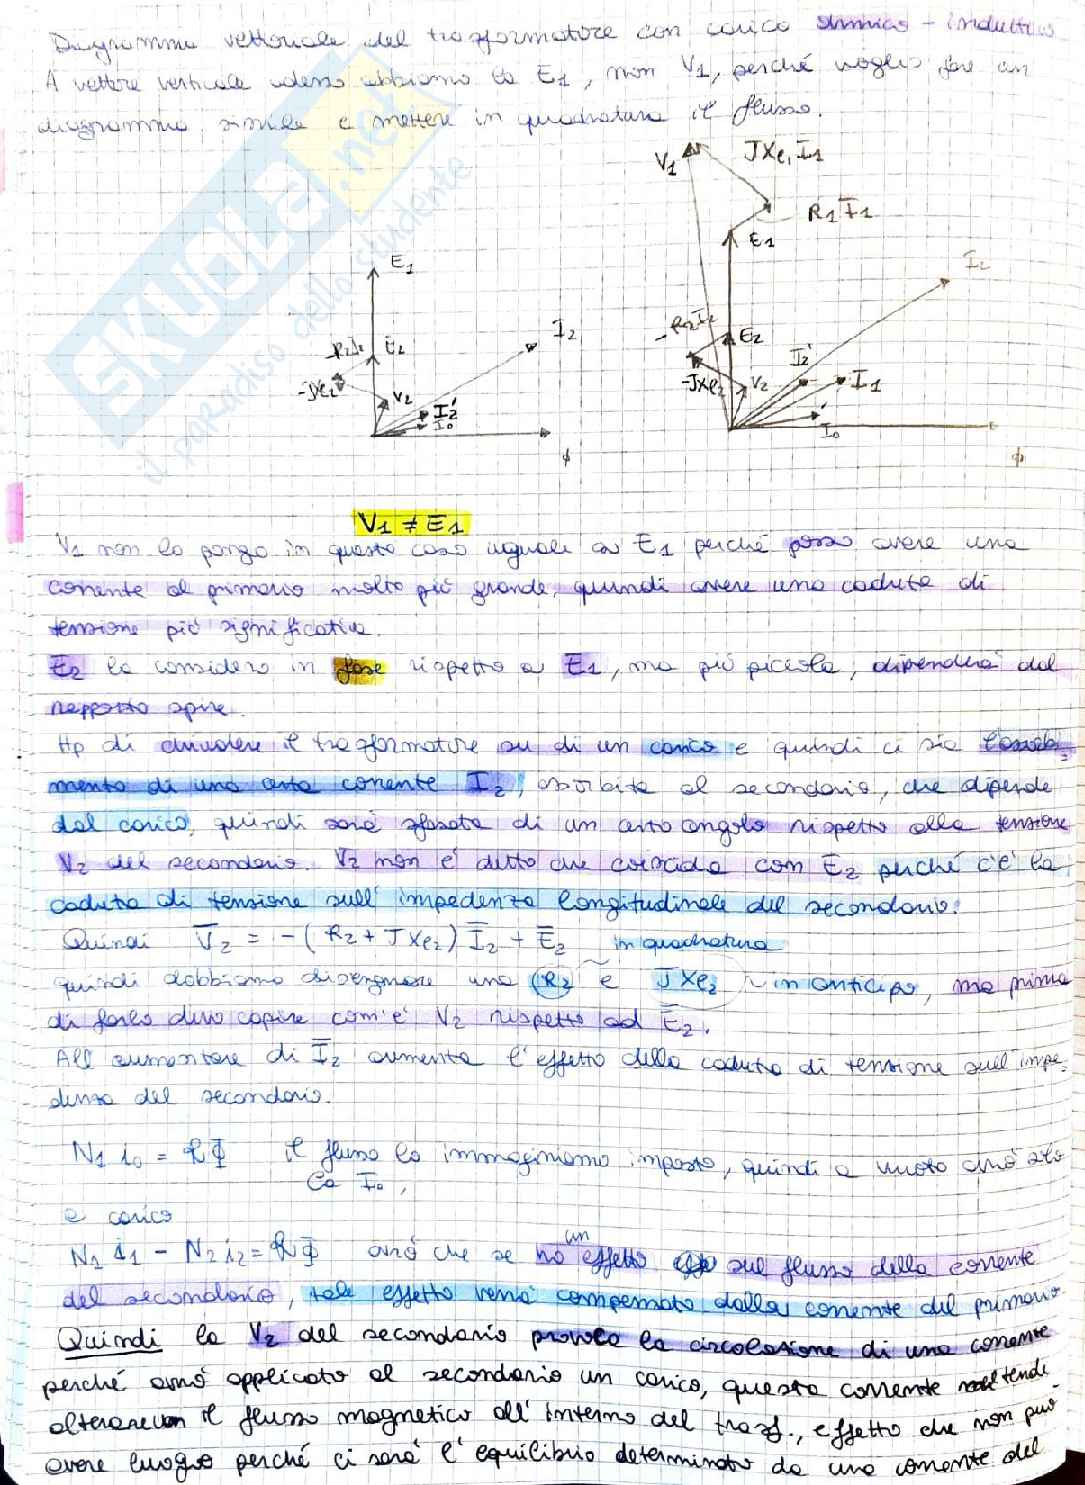 Diagramma vettoriale del trasformatore con carico ohmico - induttivo
A vettore verticale adesso abbiamo la E1, non V1, perché voglio fare un
diagramma simile e mettere in quadratura il flusso.
V1 JXe1 I1
R1 I1
E1
I2
E1
-R2I2
E2
I2
-R2I2 E2
I2' I1
-JXe2 V2
-JXe2 V2
I2'
I0
I0
φ
φ
SKUOLA.net
il paradiso dello studente
V1 ≠ E1
V1 non la pongo in questo caso uguale a E1 perché posso avere una
corrente al primario molto più grande, quindi avere una caduta di
tensione più significativa.
E2 la considero in fase rispetto a E1, ma più piccola, dipenderà dal
rapporto spire.
Hp di chiudere il trasformatore su di un carico e quindi ci sia l'assorbi-
mento di una certa corrente I2, assorbita al secondario, che dipende
dal carico, quindi sarà sfasata di un certo angolo rispetto alla tensione
V2 del secondario. V2 non è detto che coincida con E2 perché c'è la
caduta di tensione sull'impedenza longitudinale del secondario.
Quindi V2 = -(R2 + JXe2) I2 + E2 in quadratura
quindi dobbiamo disegnare una R2 e JXe2 in anticipo, ma prima
di farlo devo capire com'è V2 rispetto ad E2.
All'aumentare di I2 aumenta l'effetto della caduta di tensione sull'impe-
denza del secondario.
N1 i0 = ℛΦ il flusso lo immaginiamo imposto, quindi a vuoto avrò solo
la I0,
a carico
N1 i1 - N2 i2 = ℛΦ avrò che se ho un effetto sul flusso della corrente
del secondario, tale effetto verrà compensato dalla corrente del primario.
Quindi la V2 del secondario provoca la circolazione di una corrente
perché avrò applicato al secondario un carico, questa corrente tende
alterare il flusso magnetico all'interno del trasf., effetto che non può
avere luogo perché ci sarà l'equilibrio determinato da una corrente del